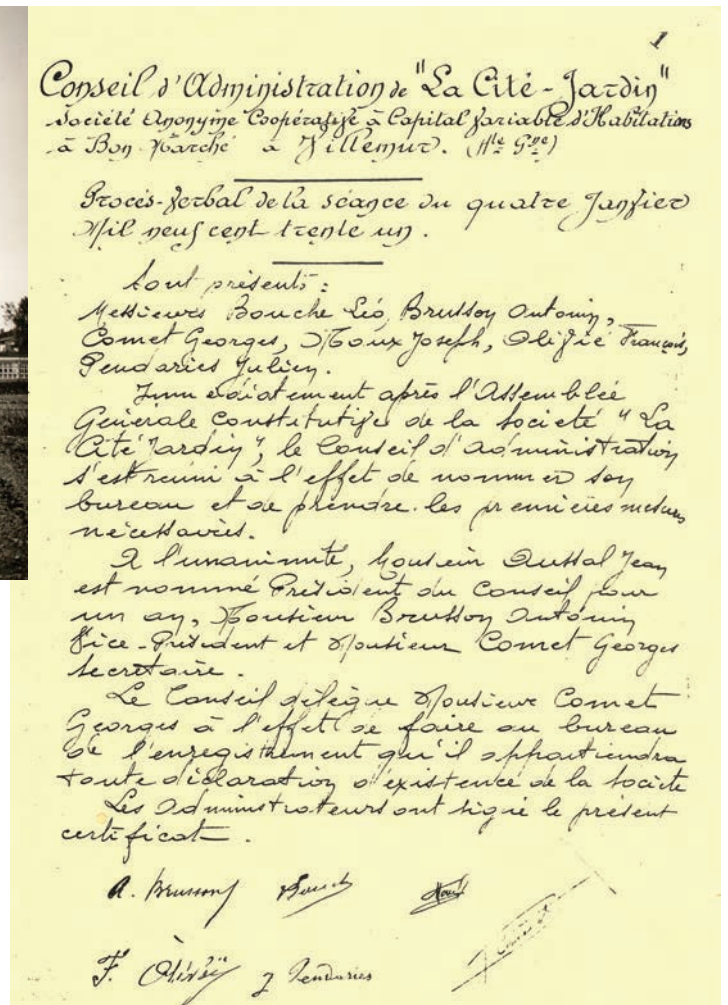 1
Conseil d'Administration de "La Cité-Jardin"
Société Anonyme Coopérative à Capital Variable d'Habitations
à Bon Marché à Villemur. (Hte Gne)
Procès-Verbal de la séance du quatre Janvier
Mil neuf cent trente un.
Sont présents :
Messieurs Bouche Léo, Brusson Antonin,
Comet Georges, Moux Joseph, Olivié François,
Pendaries Julien.
Immediatement après l'Assemblée
Générale Constitutive de la Societé "La
Cité Jardin", le Conseil d'administration
s'est reuni à l'effet de nommer son
bureau et de prendre les premières mesures
nécessaires.
A l'unanimité, Monsieur Aussal Jean
est nommé Président du Conseil pour
un an, Monsieur Brusson Antonin
Vice-Président et Monsieur Comet Georges
secretaire.
Le Conseil délègue Monsieur Comet
Georges à l'effet de faire au bureau
de l'enregistrement qu'il appartiendra
toute déclaration d'existence de la Societe
Les administrateurs ont signé le présent
certificat.
A. Brusson Bouche Moux
F. Olivié J Pendaries